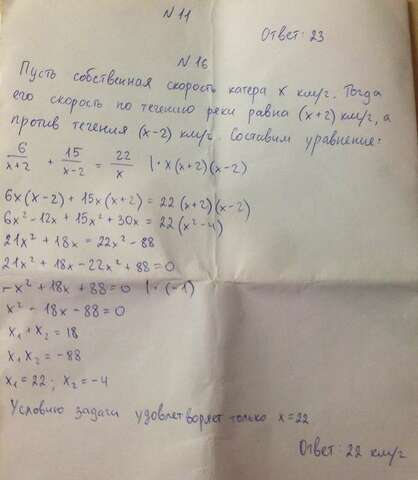 N 11
Ответ: 23
N 16
Пусть собственная скорость катера x км/г. Тогда
его скорость по течению реки равна (x+2) км/г, а
против течения (x-2) км/г. Составим уравнение:
6/(x+2) + 15/(x-2) = 22/x |· x(x+2)(x-2)
6x(x-2) + 15x(x+2) = 22(x+2)(x-2)
6x² - 12x + 15x² + 30x = 22(x²-4)
21x² + 18x = 22x² - 88
21x² + 18x - 22x² + 88 = 0
-x² + 18x + 88 = 0 |· (-1)
x² - 18x - 88 = 0
x₁ + x₂ = 18
x₁ x₂ = -88
x₁ = 22; x₂ = -4
Условию задачи удовлетворяет только x = 22
Ответ: 22 км/г